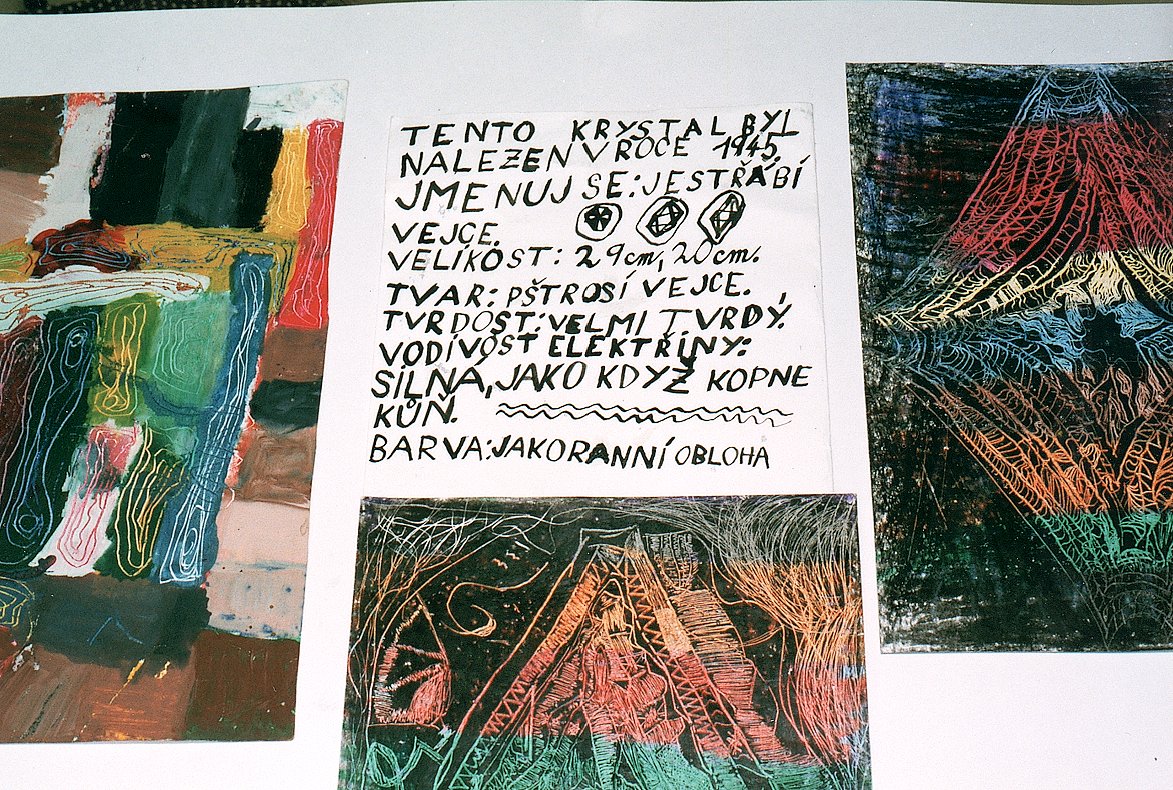 TENTO KRYSTAL BYL
NALEZEN V ROCE 1945.
JMENUJ SE: JESTŘÁBÍ
VEJCE.
VELÍKOST: 29cm, 20cm.
TVAR: PŠTROSÍ VEJCE.
TVRDOST: VELMI TVRDÝ.
VODÍVOST ELEKTŘINY:
SÍLNÁ, JAKO KDYŽ KOPNE
KŮŇ.
BARVA: JAKO RANNÍ OBLOHA